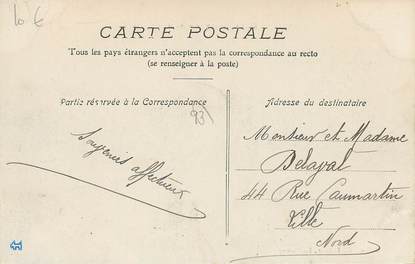 10 €
CARTE POSTALE
Tous les pays étrangers n'acceptent pas la correspondance au recto
(se renseigner à la poste)
Partie réservée à la Correspondance
93
Souvenirs affectueux
Adresse du destinataire
Monsieur et Madame
Delaval
44 Rue Caumartin
Lille
Nord